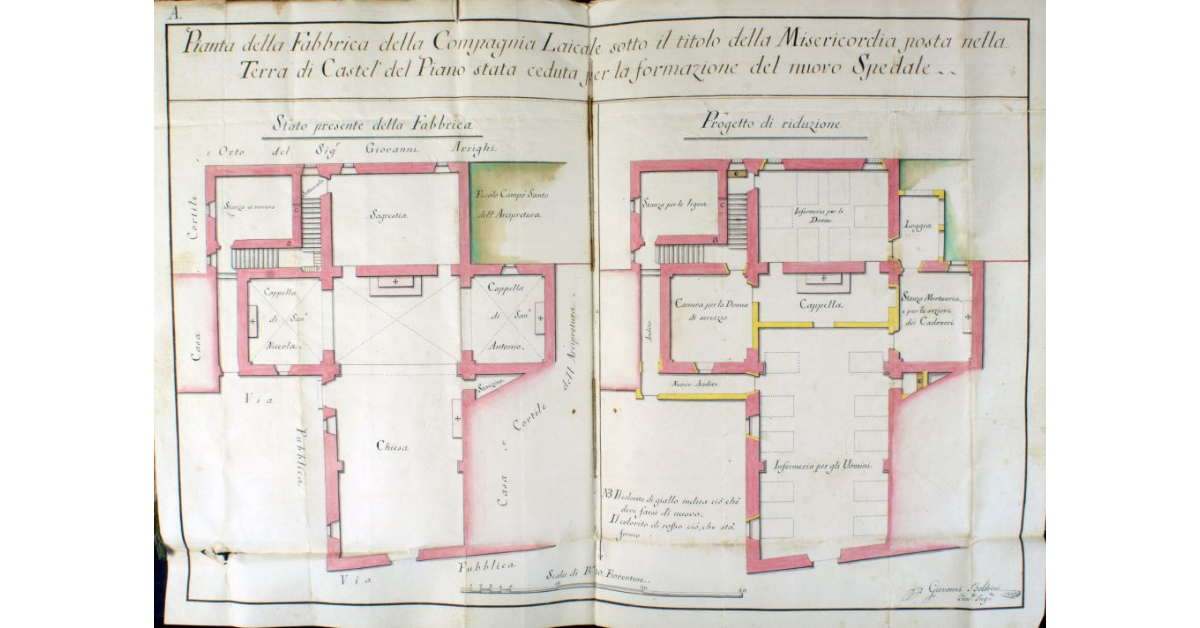 A.
Pianta della Fabbrica della Compagnia Laicale sotto il titolo della Misericordia posta nella
Terra di Castel del Piano stata ceduta per la formazione del nuovo Spedale
Stato presente della Fabbrica
e Orto del Sig.r Giovanni Arrighi
Cortile
Stanza a terreno
Sagrestia
Piccolo Campo Santo
dell'Arcipretura
Casa
Cappella
di San
Niccola
Cappella
di San
Antonio
dell'Arcipretura
Via
Pubblica
Chiesa
Casa e Cortile
Via Pubblica
Progetto di riduzione
Stanza per le legna
Infermeria per le
Donne
Loggia
Camera per le Donne
di servizio
Cappella
Stanza Mortuaria,
e per la sezione
dei Cadaveri
Andito
Nuovo Andito
Infermeria per gli Uomini
NB. Il colorito di giallo indica ciò che
deve farsi di nuovo
Il colorito di rosso ciò, che stà
fermo
Scala di Fiorentine
Giovanni